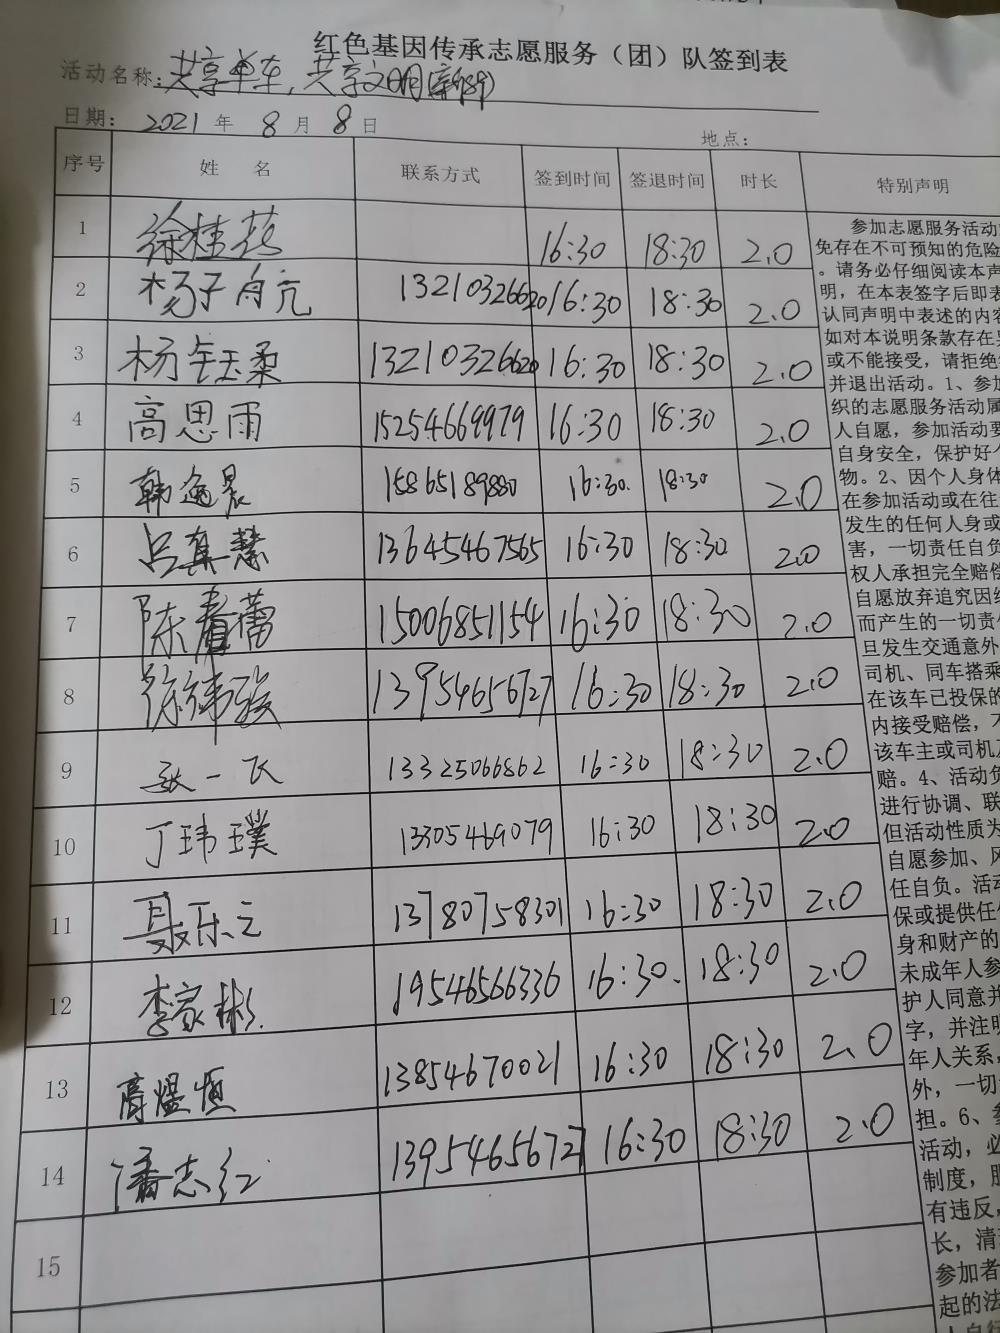 红色基因传承志愿服务（团）队签到表
活动名称：共享单车，共享文明
日期： 2021 年 8 月 8 日
地点：
序号 姓 名 联系方式 签到时间 签退时间 时长 特别声明
1 徐桂 16:30 18:30 2.0
2 杨子舟亢 13210326620 16:30 18:30 2.0
3 杨钰柔 13210326620 16:30 18:30 2.0
4 高思雨 15254669979 16:30 18:30 2.0
5 韩逸晨 15865189880 16:30 18:30 2.0
6 吕真慧 13645467565 16:30 18:30 2.0
7 陈蕾 15006851154 16:30 18:30 2.0
8 徐 13954656727 16:30 18:30 2.0
9 一飞 13325066862 16:30 18:30 2.0
10 丁玮璞 13305469079 16:30 18:30 2.0
11 聂乐之 13780758301 16:30 18:30 2.0
12 李家彬 19546566336 16:30 18:30 2.0
13 高煜恒 13854670021 16:30 18:30 2.0
14 潘志红 13954656727 16:30 18:30 2.0
15
参加志愿服务活动
免存在不可预知的危险
。请务必仔细阅读本声
明，在本表签字后即表
认同声明中表述的内容
如对本说明条款存在
或不能接受，请拒绝
并退出活动。1、参加
织的志愿服务活动属
人自愿，参加活动要
自身安全，保护好个
物。2、因个人身体
在参加活动或在往
发生的任何人身或
害，一切责任自负
权人承担完全赔偿
自愿放弃追究因
而产生的一切责任
旦发生交通意外
司机、同车搭乘
在该车已投保的
内接受赔偿，不
该车主或司机及
赔。4、活动负
进行协调、联
但活动性质为
自愿参加、风
任自负。活动
保或提供任何
身和财产的
未成年人参
护人同意并
字，并注明
年人关系，
外，一切
担。6、参
活动，必
制度，服
有违反，
长，清
参加者
起的法